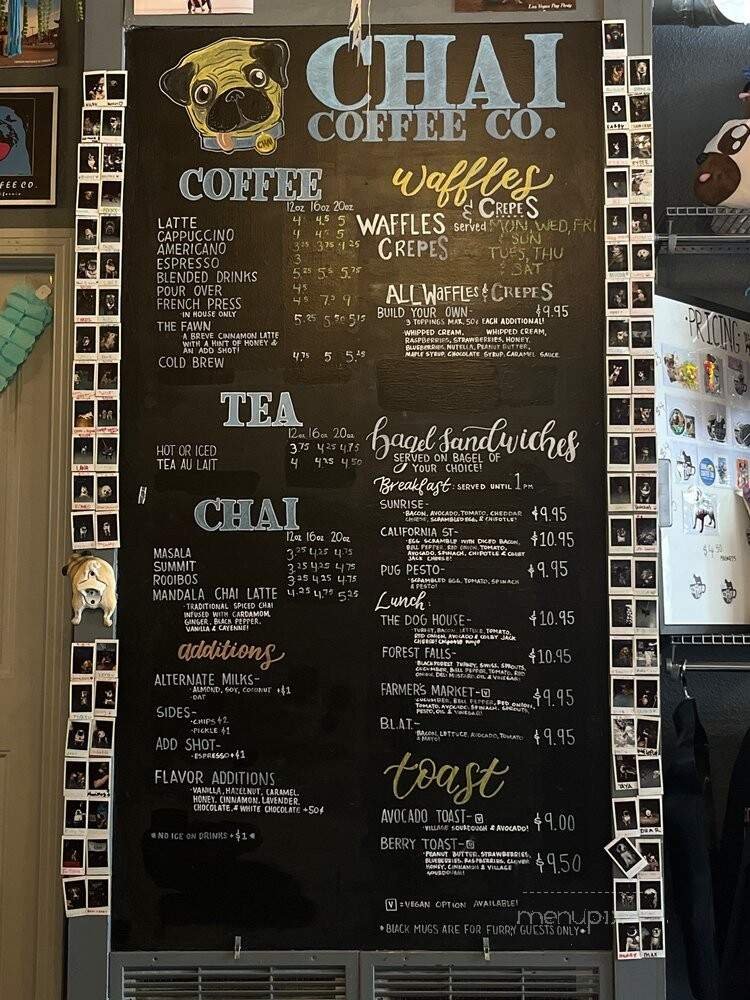 CHAI
COFFEE CO.
CHAI
COFFEE
12oz 16oz 20oz
LATTE 4 4.5 5
CAPPUCCINO 4 4.5 5
AMERICANO 3.25 3.75 4.25
ESPRESSO 3
BLENDED DRINKS 5.25 5.5 5.75
POUR OVER 4.5
FRENCH PRESS 4.5 7.5 9
-IN HOUSE ONLY
THE FAWN 5.25 5.50 5.75
A BREVE CINNAMON LATTE
WITH A HINT OF HONEY &
AN ADD SHOT!
COLD BREW 4.75 5 5.25
TEA
12oz 16oz 20oz
HOT OR ICED 3.75 4.25 4.75
TEA AU LAIT 4 4.25 4.50
CHAI
12oz 16oz 20oz
MASALA 3.75 4.25 4.75
SUMMIT 3.75 4.25 4.75
ROOIBOS 3.75 4.25 4.75
MANDALA CHAI LATTE 4.25 4.75 5.25
-TRADITIONAL SPICED CHAI
INFUSED WITH CARDAMOM,
GINGER, BLACK PEPPER,
VANILLA & CAYENNE!
additions
ALTERNATE MILKS-
-ALMOND, SOY, COCONUT +$1
OAT
SIDES-
-CHIPS $2
-PICKLE $1
ADD SHOT-
-ESPRESSO +$1
FLAVOR ADDITIONS
-VANILLA, HAZELNUT, CARAMEL,
HONEY, CINNAMON, LAVENDER,
CHOCOLATE, & WHITE CHOCOLATE +50¢
*NO ICE ON DRINKS +$1*
waffles
& CREPES
WAFFLES served MON, WED, FRI
& SUN
CREPES TUES, THU
& SAT
ALL WAFFLES & CREPES
BUILD YOUR OWN- $9.95
3 TOPPINGS MAX, 50¢ EACH ADDITIONAL!
WHIPPED CREAM, WHIPPED CREAM,
RASPBERRIES, STRAWBERRIES, HONEY,
BLUEBERRIES, NUTELLA, PEANUT BUTTER,
MAPLE SYRUP, CHOCOLATE SYRUP, CARAMEL SAUCE
bagel sandwiches
SERVED ON BAGEL OF
YOUR CHOICE!
Breakfast: SERVED UNTIL 1PM
SUNRISE- $9.95
-BACON, AVOCADO, TOMATO, CHEDDAR
CHEESE, SCRAMBLED EGG, & CHIPOTLE!
CALIFORNIA ST- $10.95
-EGG SCRAMBLE WITH DICED BACON,
BELL PEPPER, RED ONION, TOMATO,
AVOCADO, SPINACH, CHIPOTLE & COLBY
JACK CHEESE!
PUG PESTO- $9.95
-SCRAMBLED EGG, TOMATO, SPINACH
& PESTO!
Lunch:
THE DOG HOUSE- $10.95
-TURKEY, BACON, LETTUCE, TOMATO,
RED ONION, AVOCADO & COLBY JACK
CHEESE! Chipotle mayo
FOREST FALLS- $10.95
-BLACKFOREST TURKEY, SWISS, SPROUTS,
CUCUMBER, BELL PEPPER, TOMATO, RED
ONION, DELI MUSTARD, OIL & VINEGAR!
FARMER'S MARKET- V $9.95
-CUCUMBER, BELL PEPPER, RED ONION,
TOMATO, AVOCADO, SPINACH, SPROUTS,
PESTO, OIL & VINEGAR!
B.L.A.T.- $9.95
-BACON, LETTUCE, AVOCADO, TOMATO
& MAYO!
toast
AVOCADO TOAST- V $9.00
-VILLAGE SOURDOUGH & AVOCADO!
BERRY TOAST- V $9.50
-PEANUT BUTTER, STRAWBERRIES,
BLUEBERRIES, RASPBERRIES, CLOVER
HONEY, CINNAMON & VILLAGE
SOURDOUGH!
V = VEGAN OPTION AVAILABLE!
*BLACK MUGS ARE FOR FURRY GUESTS ONLY*
menupix
PRICING
$4.50